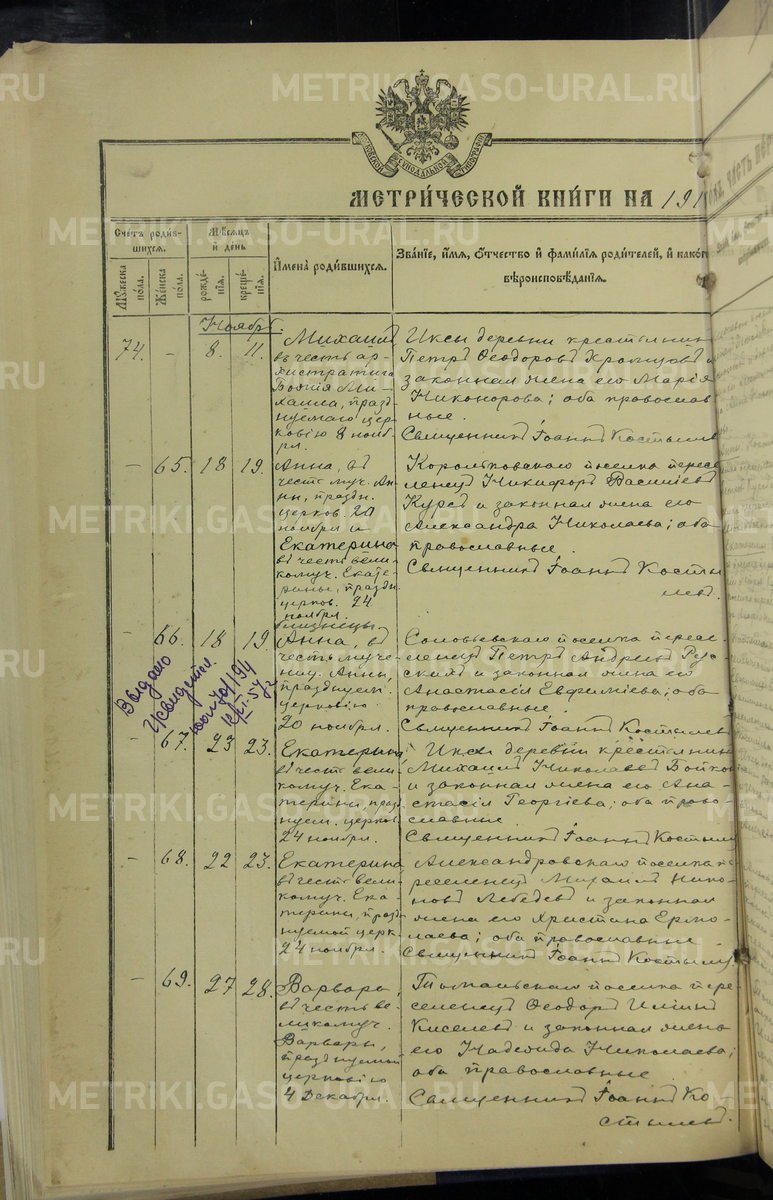 МОСКОВСКОЙ СѴНОДАЛЬНОЙ ТИПОГРАФІИ
МЕТРИЧЕСКОЙ КНИГИ НА 191
Счетъ родив-
шихся.
Мѣсяцъ
и день
Имена родившихся.
Званіе, имя, отчество и фамилія родителей, и како
вѣроисповѣданія.
Мужеска
пола.
Женска
пола.
рожде-
нія.
креще-
нія.
Ноябрь.
74. - 8. 11.
Михаилъ
въ честь ар-
хистратига
Божія Ми-
хаила, празд-
нуемаго цер-
ковію 8 нояб-
ря.
Иксы деревни крестьянин
Петръ Ѳеодоровъ и
законная жена его Марія
Никонорова; оба православ
ные.
Священникъ Іоаннъ Костылев
- 65. 18 19.
Анна, въ
честь муч. Ан-
ны, праздн.
церков. 20
ноября и
Екатерина
въ честь вели-
комуч. Екате-
рины, праздн
церков. 24
ноября.
близнецы
поселка пересе
ленецъ Никифоръ Василіев
Курс и законная жена его
Александра Николаева; оба
православные.
Священникъ Іоаннъ Косты
левъ.
- 66. 18 19.
Анна, въ
честь муче-
ниц. Анны,
празднуем.
церковію
20 ноября.
Соловьевскаго поселка пересе-
ленецъ Петръ и законная жена его
Анастасія Евфиміева; оба
православные.
Священникъ Іоаннъ Костылевъ
Выдано
- 67. 23 23.
Екатерина,
въ честь вели-
комуч. Ека-
терины, праз
нуем. церков.
24 ноября.
Иксы деревни крестьянин
Михаилъ Николаевъ Бойков
и законная жена его Ана-
стасія Георгіева; оба право-
славные.
Священникъ Іоаннъ Костылев
- 68. 22 23.
Екатерина,
въ честь вели-
комуч. Ека-
терины, празд-
нуемой церк.
24 ноября.
Александровскаго поселка пе
реселенецъ Михаилъ Нико-
новъ Лебедевъ и законная
жена его Христина Ермо-
лаева; оба православные.
Священникъ Іоаннъ Костылев
- 69. 27 28.
Варвара,
въ честь ве-
ликомуч.
Варвары,
празднуемой
церковію
4 Декабря.
поселка пере-
селенецъ Ѳеодоръ Ильинъ
Киселевъ и законная жена
его Надежда Николаева;
оба православные.
Священникъ Іоаннъ Ко-
стылевъ.
METRIKI.GASO-URAL.RU